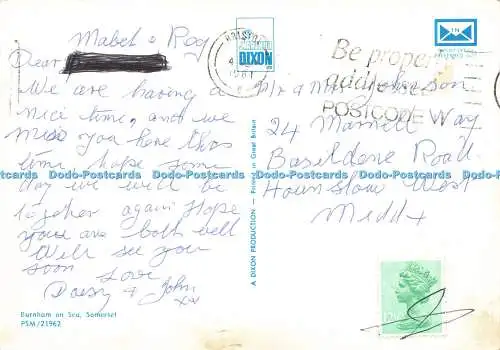 Mabel & Roy
Dear
We are having a
nice time, and we
miss you here this
time, hope some
day we will be
together again Hope
you are both well
Will see you
soon Love
Daisy & John
xx
Burnham on Sea, Somerset
PSM/21962
A DIXON PRODUCTION — Printed in Great Britain
DIXON
Be properly
addressed
POSTCODE
Mr & Mrs Johnson
24 Marnell Way
Basildene Road
Hounslow West
Middx
Dodo-Postcards Dodo-Postcards Dodo-Postcards Dodo-Postcards